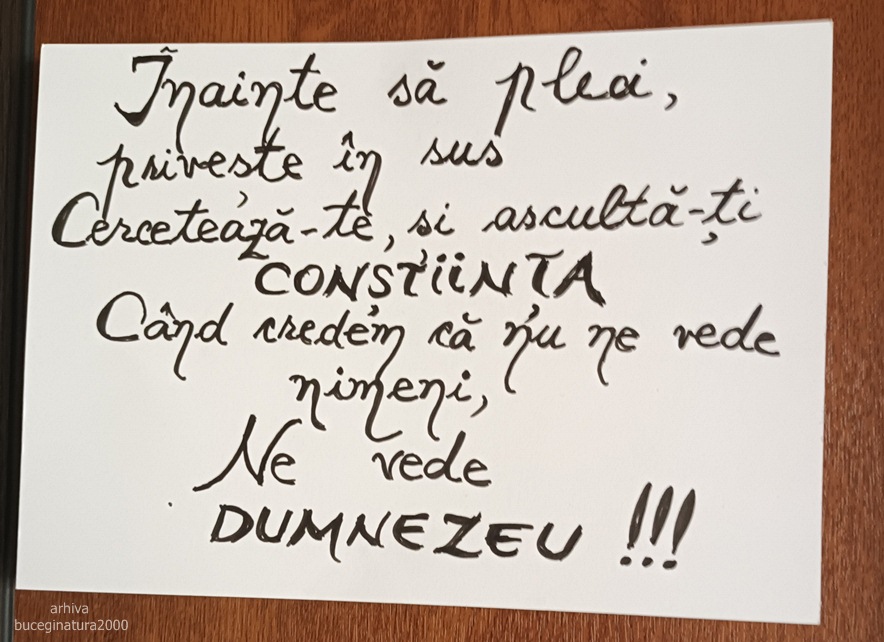 Înainte să pleci,
privește în sus
Cercetează-te, și ascultă-ți
CONȘTIINȚA
Când credem că nu ne vede
nimeni,
Ne vede
DUMNEZEU !!!
arhiva
buceginatura2000